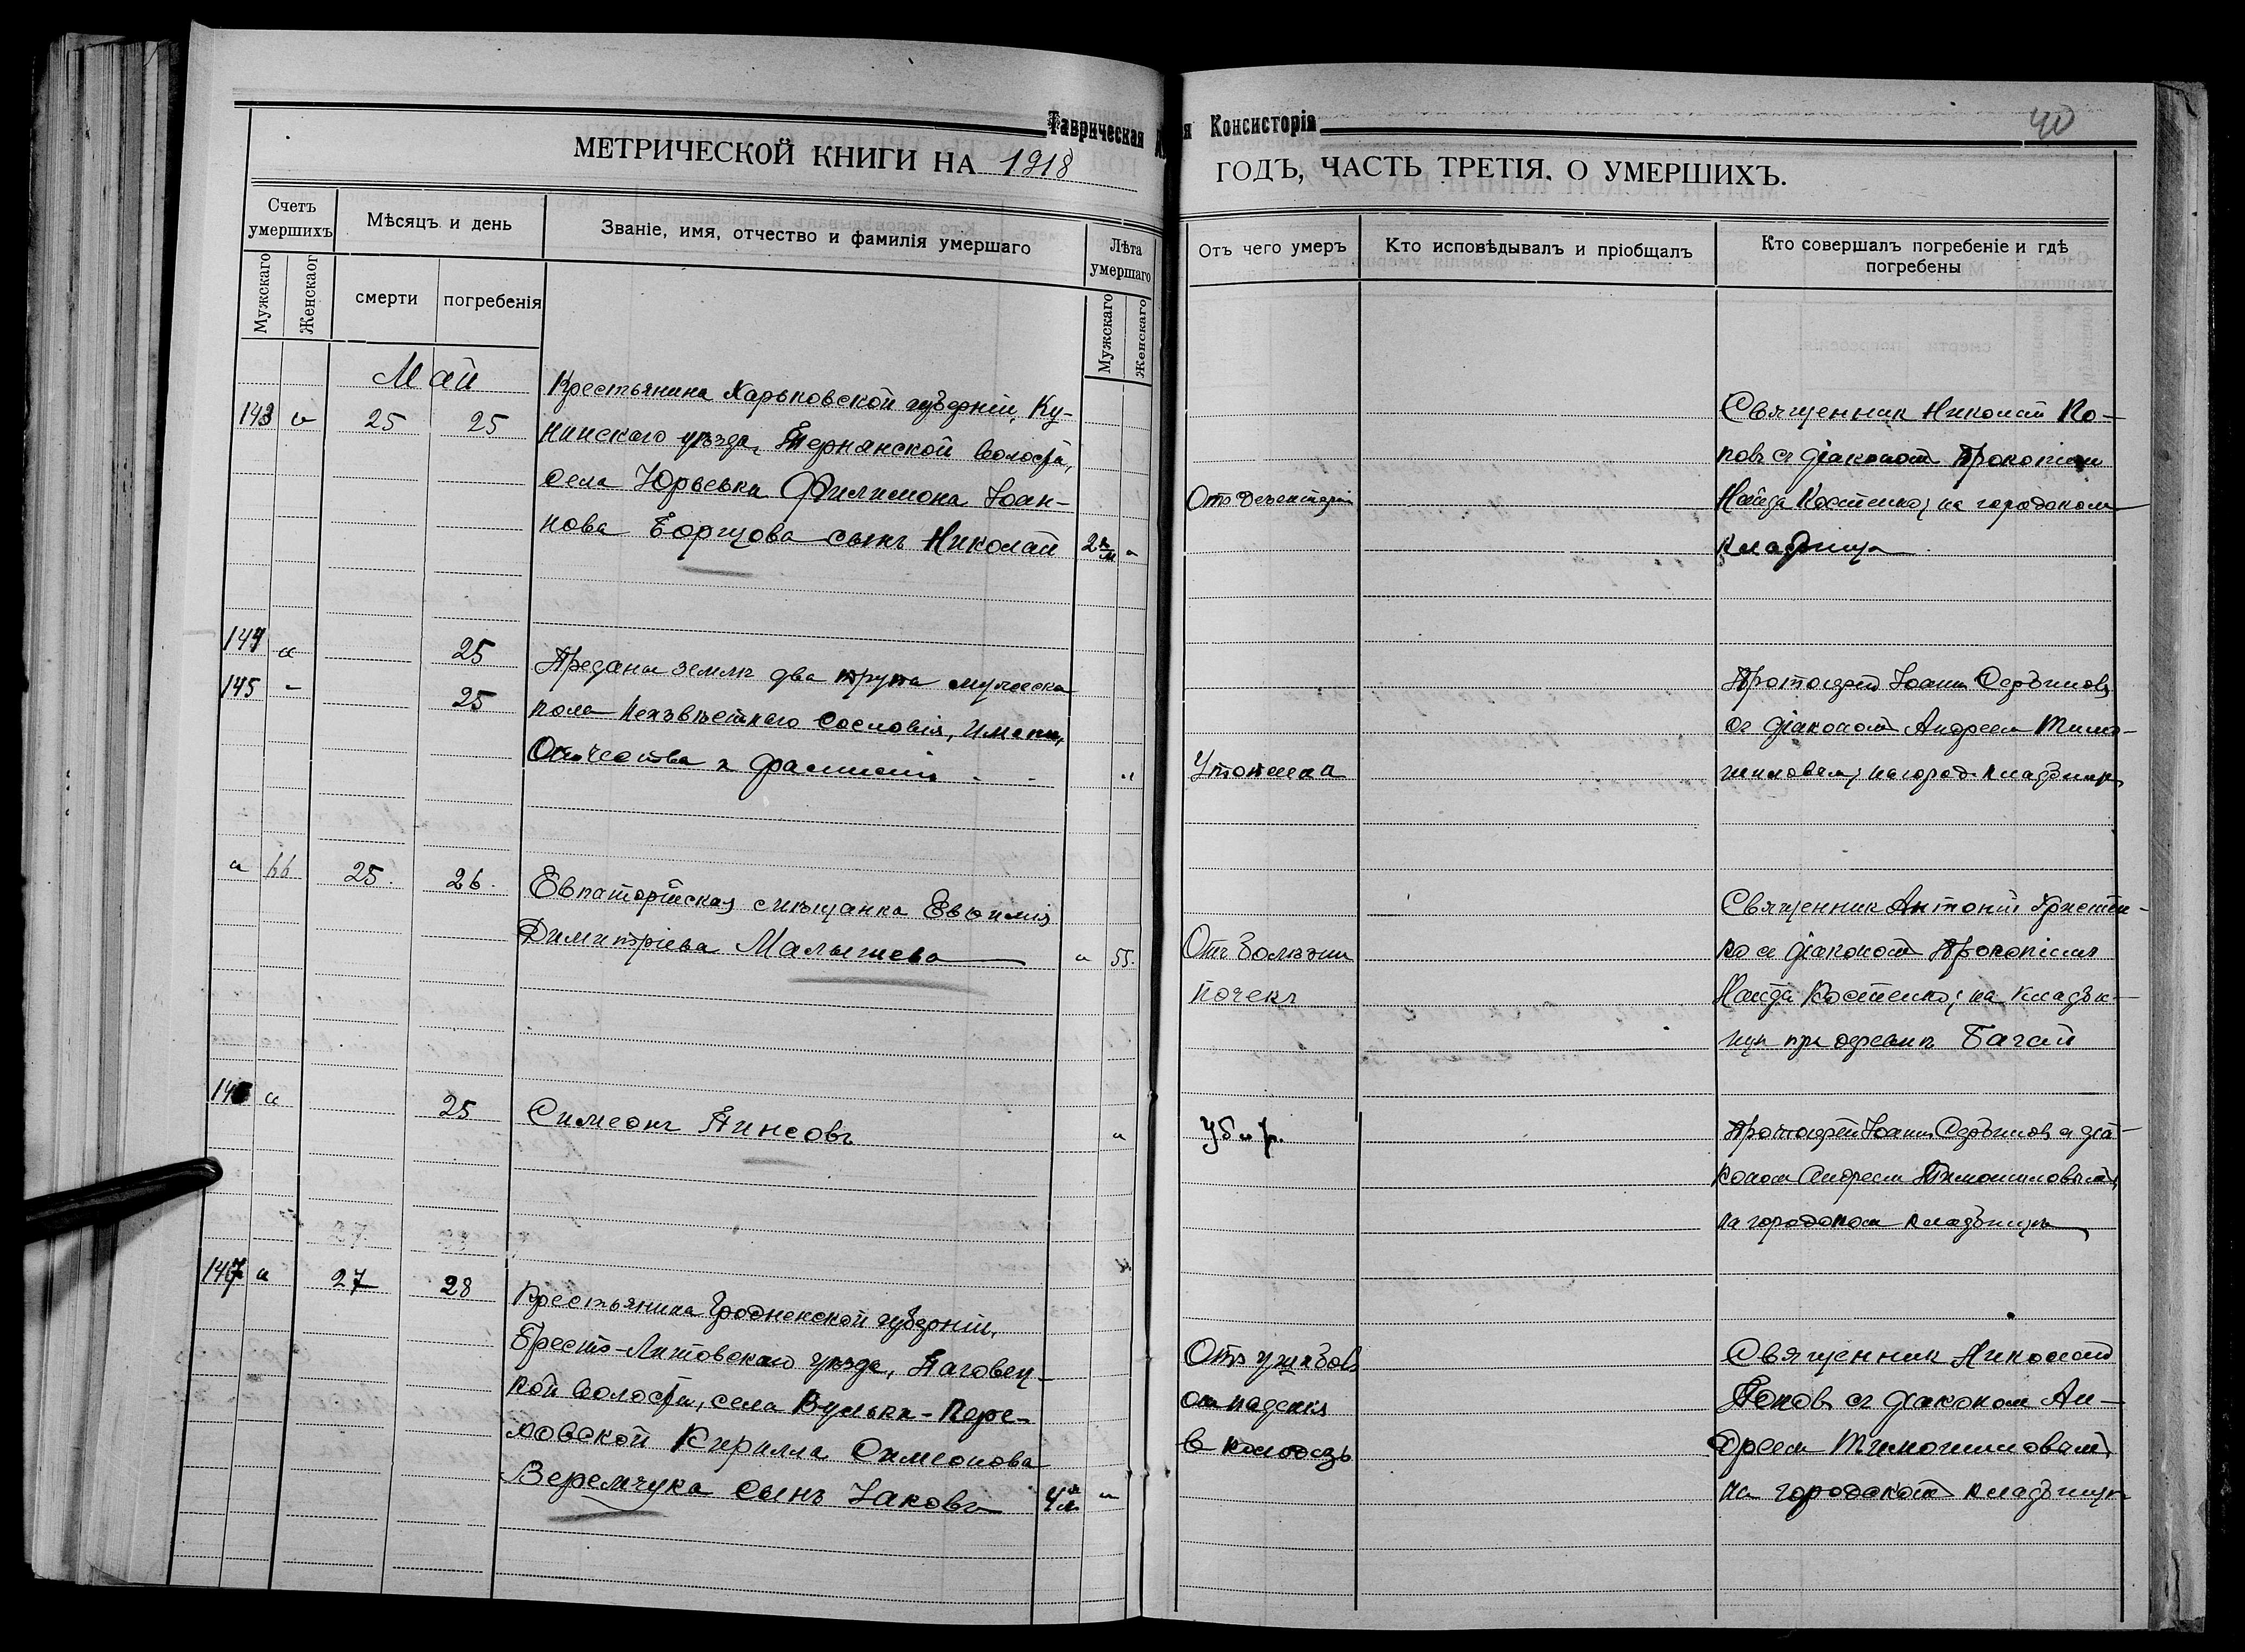 Таврическая
я Консисторія
40
МЕТРИЧЕСКОЙ КНИГИ НА 1918
ГОДЪ, ЧАСТЬ ТРЕТІЯ. О УМЕРШИХЪ.
Счетъ умершихъ
Мѣсяцъ и день
Званіе, имя, отчество и фамилія умершаго
Лѣта умершаго
Отъ чего умеръ
Кто исповѣдывалъ и пріобщалъ
Кто совершалъ погребеніе и гдѣ
погребены
Мужскаго
Женскаог
смерти
погребенія
Мужскаго
Женскаго
Май
143 " 25 25
Крестьянина Харьковской губерніи, Ку-
пинскаго уѣзда, Тернянской волости,
села Юрьевки Филимона Іоан-
нова Борщова сынъ Николай
2 "
Отъ дезентеріи
Священникъ Николай По-
повъ съ діакономъ Прокопіемъ
Найда Костенко; на городскомъ
кладбищѣ
144 " 25
145 - 25
Преданы землѣ два трупа мужска
пола неизвѣстнаго сословія, имени,
Отчества и фамиліи - - "
Утопленка
Протоіерей Іоаннъ Сербиновъ
съ діакономъ Андреемъ Тимо-
шиловымъ; на город. кладбищѣ
" 66 25. 26.
Евпаторійская мѣщанка Евѳимія
Димитріева Малышева
" 55.
Отъ болѣзни
почекъ
Священникъ Антоній
ко съ діакономъ Прокопіемъ
Найда Костенко; на кладби-
щѣ при деревнѣ Багай
146 " 25
Симеонъ Пинсовъ
"
Убитъ.
Протоіерей Іоаннъ Сербиновъ съ діа-
кономъ Андреемъ Тимошиловымъ,
на городскомъ кладбищѣ
147 " 27 28
Крестьянина Гродненской губерніи,
Брестъ-Литовскаго уѣзда,
кой волости, села Вульки-
мовской Кирилла Симеонова
Веремчука сынъ Іаковъ
4 "
Отъ ушибовъ
от паденія
в колодезь
Священникъ Николай
Поповъ съ діакономъ Ан-
дреемъ Тимошиловымъ
на городскомъ кладбищѣ